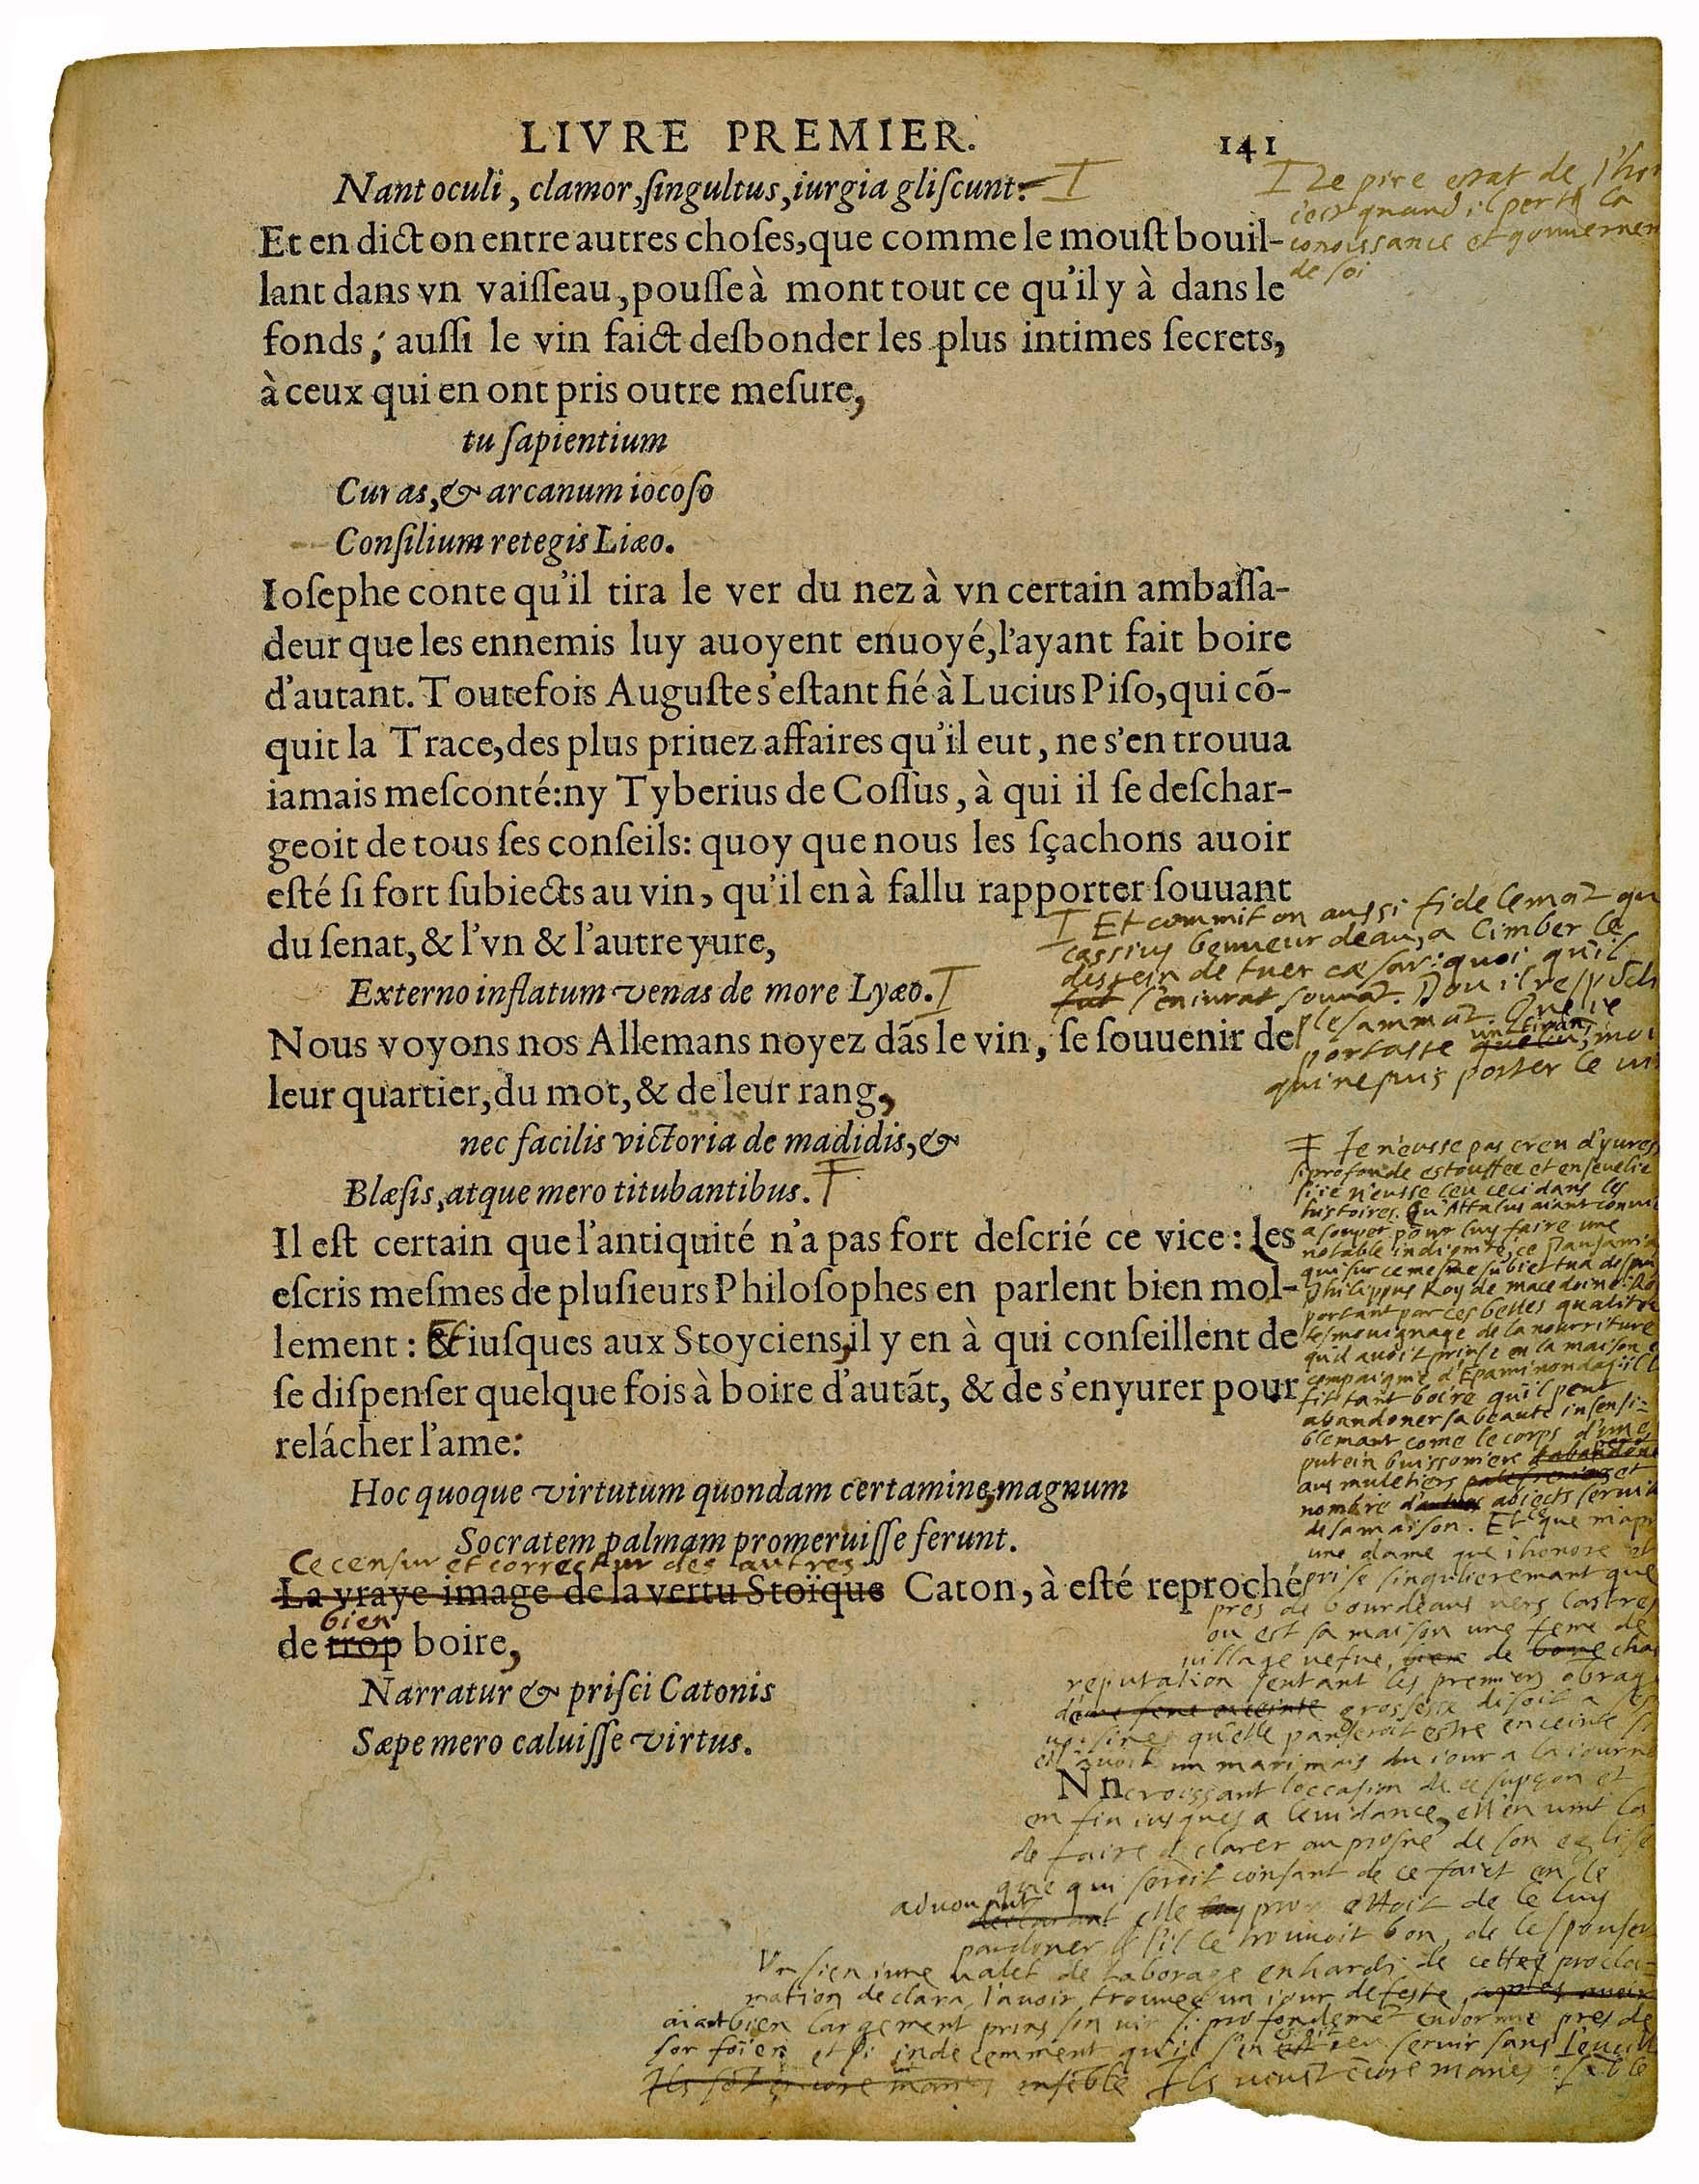 LIVRE PREMIER. 141
Nant oculi, clamor, ſingultus, iurgia gliſcunt:
Et en dict on entre autres choſes, que comme le mouſt bouil-
lant dans vn vaiſſeau, pouſſe à mont tout ce qu'il y à dans le
fonds; auſſi le vin faict deſbonder les plus intimes ſecrets,
à ceux qui en ont pris outre meſure,
tu ſapientium
Curas, & arcanum iocoſo
Conſilium retegis Liæo.
Ioſephe conte qu'il tira le ver du nez à vn certain ambaſſa-
deur que les ennemis luy auoyent enuoyé, l'ayant fait boire
d'autant. Toutefois Auguſte s'eſtant fié à Lucius Piſo, qui cõ-
quit la Trace, des plus priuez affaires qu'il eut, ne s'en trouua
iamais meſconté: ny Tyberius de Coſſus, à qui il ſe deſchar-
geoit de tous ſes conſeils: quoy que nous les ſçachons auoir
eſté ſi fort ſubiects au vin, qu'il en à fallu rapporter ſouuant
du ſenat, & l'vn & l'autre yure,
Externo inflatum venas de more Lyæo.
Nous voyons nos Allemans noyez dãs le vin, ſe ſouuenir de
leur quartier, du mot, & de leur rang,
nec facilis victoria de madidis, &
Blæſis, atque mero titubantibus.
Il eſt certain que l'antiquité n'a pas fort deſcrié ce vice: les
eſcris meſmes de pluſieurs Philoſophes en parlent bien mol-
lement: Et iuſques aux Stoyciens, il y en à qui conſeillent de
ſe diſpenſer quelque fois à boire d'autãt, & de s'enyurer pour
relácher l'ame:
Hoc quoque virtutum quondam certamine, magnum
Socratem palmam promeruiſſe ferunt.
Ce censur et correctur des autres
La vraye image de la vertu Stoïque Caton, à eſté reproché
bien
de trop boire,
Narratur & priſci Catonis
Sæpe mero caluiſſe virtus.
Nn
Le pire estat de l'ho
c'est quand il pert la
conoissance et gouvernem
de soi
Et commit on aussi fidelemãt qu
cassius beuveur deau, a Cimber le
dessein de tuer cæsar: quoi qu'il
fut s'enivrat souvãt. D'ou il respõdit
plesammãt. Que ie
un tiran,
portasse moi
qui ne puis porter le vin
Ie n'eusse pas creu d'yures
si profonde estouffee et ensevelie
si ie n'eusse leu ceci dans les
histoires. Qu'Attalus aiant convié
a souper pour luy faire une
notable indignité, ce Pausanias
qui sur ce mesme subiet tua despuis
Philippus Roy de macedoine: Roy
portant par ces belles qualitez
tesmouignage de la nourriture
qu'il avoit prinse en la maison et
compaignie d'Epaminondas: il le
fit tant boire qu'il peut
abandoner sa beauté insensi-
blemant come le corps d'une
putein buissoniere
aus muletiers et
nombre d' abiects servit
de sa maison. Et ce que m'aprit
une dame que i'honore et
prise singulieremant que
pres de bourdeaus vers Castres
ou est sa maison une feme de
village vefve, de chaste
reputation sentant les premiers õbrages
de grossesse disoit a ses
voisines qu'elle panseroit estre enceinte si
ell'avoit un mari mais du iour a la iournee
croissant l'occasion de ce supçon et
en fin iusques a l'evidance, ell'en vint la
de faire declarer au prosne de son eglise
que qui seroit consant de ce faict en le
advouant elle promettoit de le luy
pardoner & s'il le trouvoit bon, de l'espouser
Un sien iune valet de laborage enhardi de cette procla-
mation declara l'avoir trouvee un iour de feste
aiant bien largement prins son vin si profondemẽt endormie pres de
son foier et si indecemment qu'il s'en servir sans l'eveill
Ils sõt encore mariez ensẽble Ils vivẽt ẽcore mariez ẽsẽble